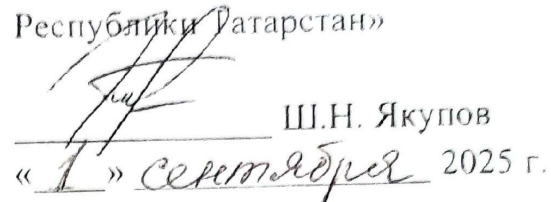 Республики Татарстан»
Ш.Н. Якупов
«1» сентября 2025 г.